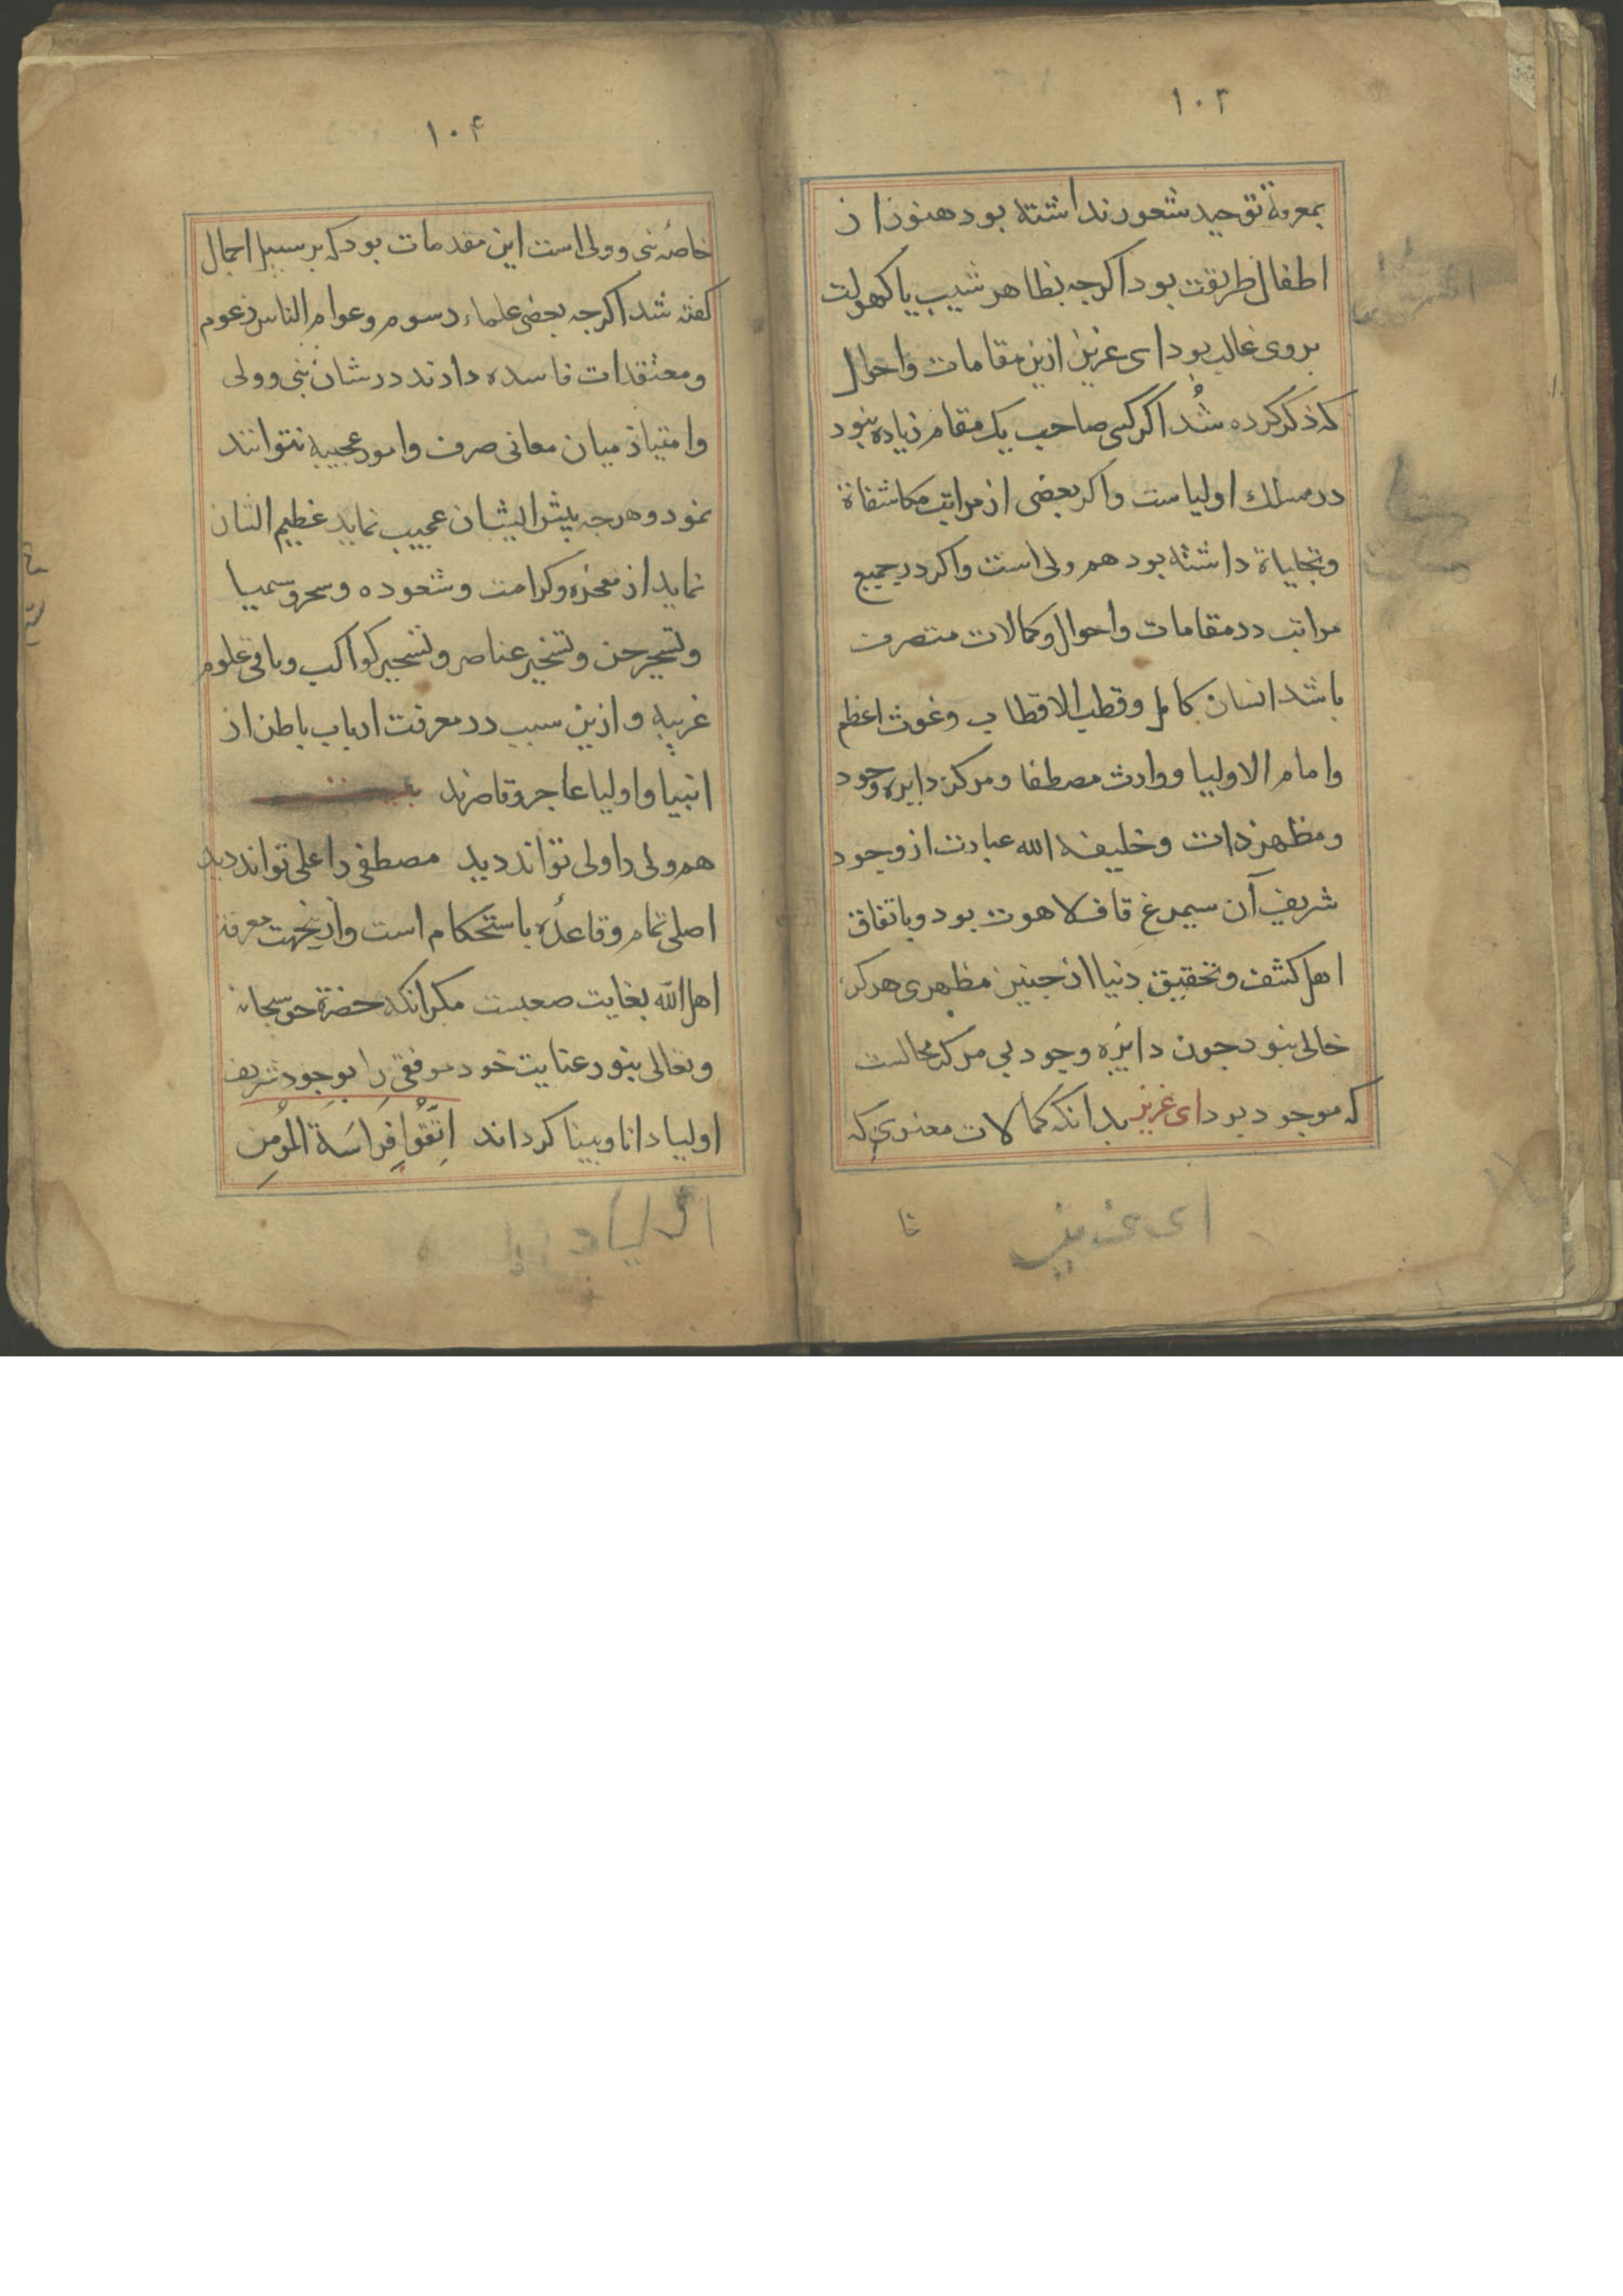 ۱۰۳
بمعرفة توحید شعور نداشته بود هنوز از
اطفال طریقت بود اکرجه بظاهر شیب یا کهولت
بروی غالب بود ای عزیز ازین مقامات واحوال
که ذکر کرده شُد اکر کسی صاحب یک مقام زیاده بنود
در مسلک اولیاست واکر بعضی از مراتب مکاشفاة
وتجلیاة داشته بود هم ولی است واکر در جمیع
مراتب در مقامات واحوال وکمالات متصرف
باشد انسان کامل وقطب الاقطاب وغوث اعظم
وامام الاولیا ووارث مصطفا ومرکز دایره وجود
ومظهر ذات وخلیفه الله عبارت از وجود
شریف آن سیمرغ قاف لاهوت بود وباتفاق
اهل کشف وتحقیق دنیا از جنین مظهری هرکز
خالی بنود جون دایره وجود بی مرکز محالست
که موجود بود ای عزیز بدانکه کمالات معنوی که
خا
ای عزیز
۱۰۴
خاصۀ نبی وولی است این مقدمات بود که بر سبیل اجمال
کفته شد اکرجه بعضی علماء رسوم وعوام الناس زعوم
ومعتقدات فاسده دارند در شان نبی وولی
وامتیاز میان معانی صرف وامور عجیبه نتوانند
نمود وهرجه پیش ایشان عجیب نماید عظیم الشان
نماید از معجزه وکرامت وشعوده وسحر وسمیا
وتسخیر جن وتسخیر عناصر وتسخیر کواکب وباقی علوم
غریبه وازین سبب در معرفت ارباب باطن از
انبیا واولیا عاجز وقاصرند
هم ولی را ولی تواند دید مصطفی را علی تواند دید
اصلی تمام وقاعدۀ باستحکام است وازینجهت معرفة
اهل الله بغایت صعبست مکر انکه حضرة حق سبحانه
وتعالی بنور عنایت خود موفقی را بوجود شریف
اولیا دانا وبینا کرداند اِتَّقُوا فِرَاسَةَ المُؤمِن